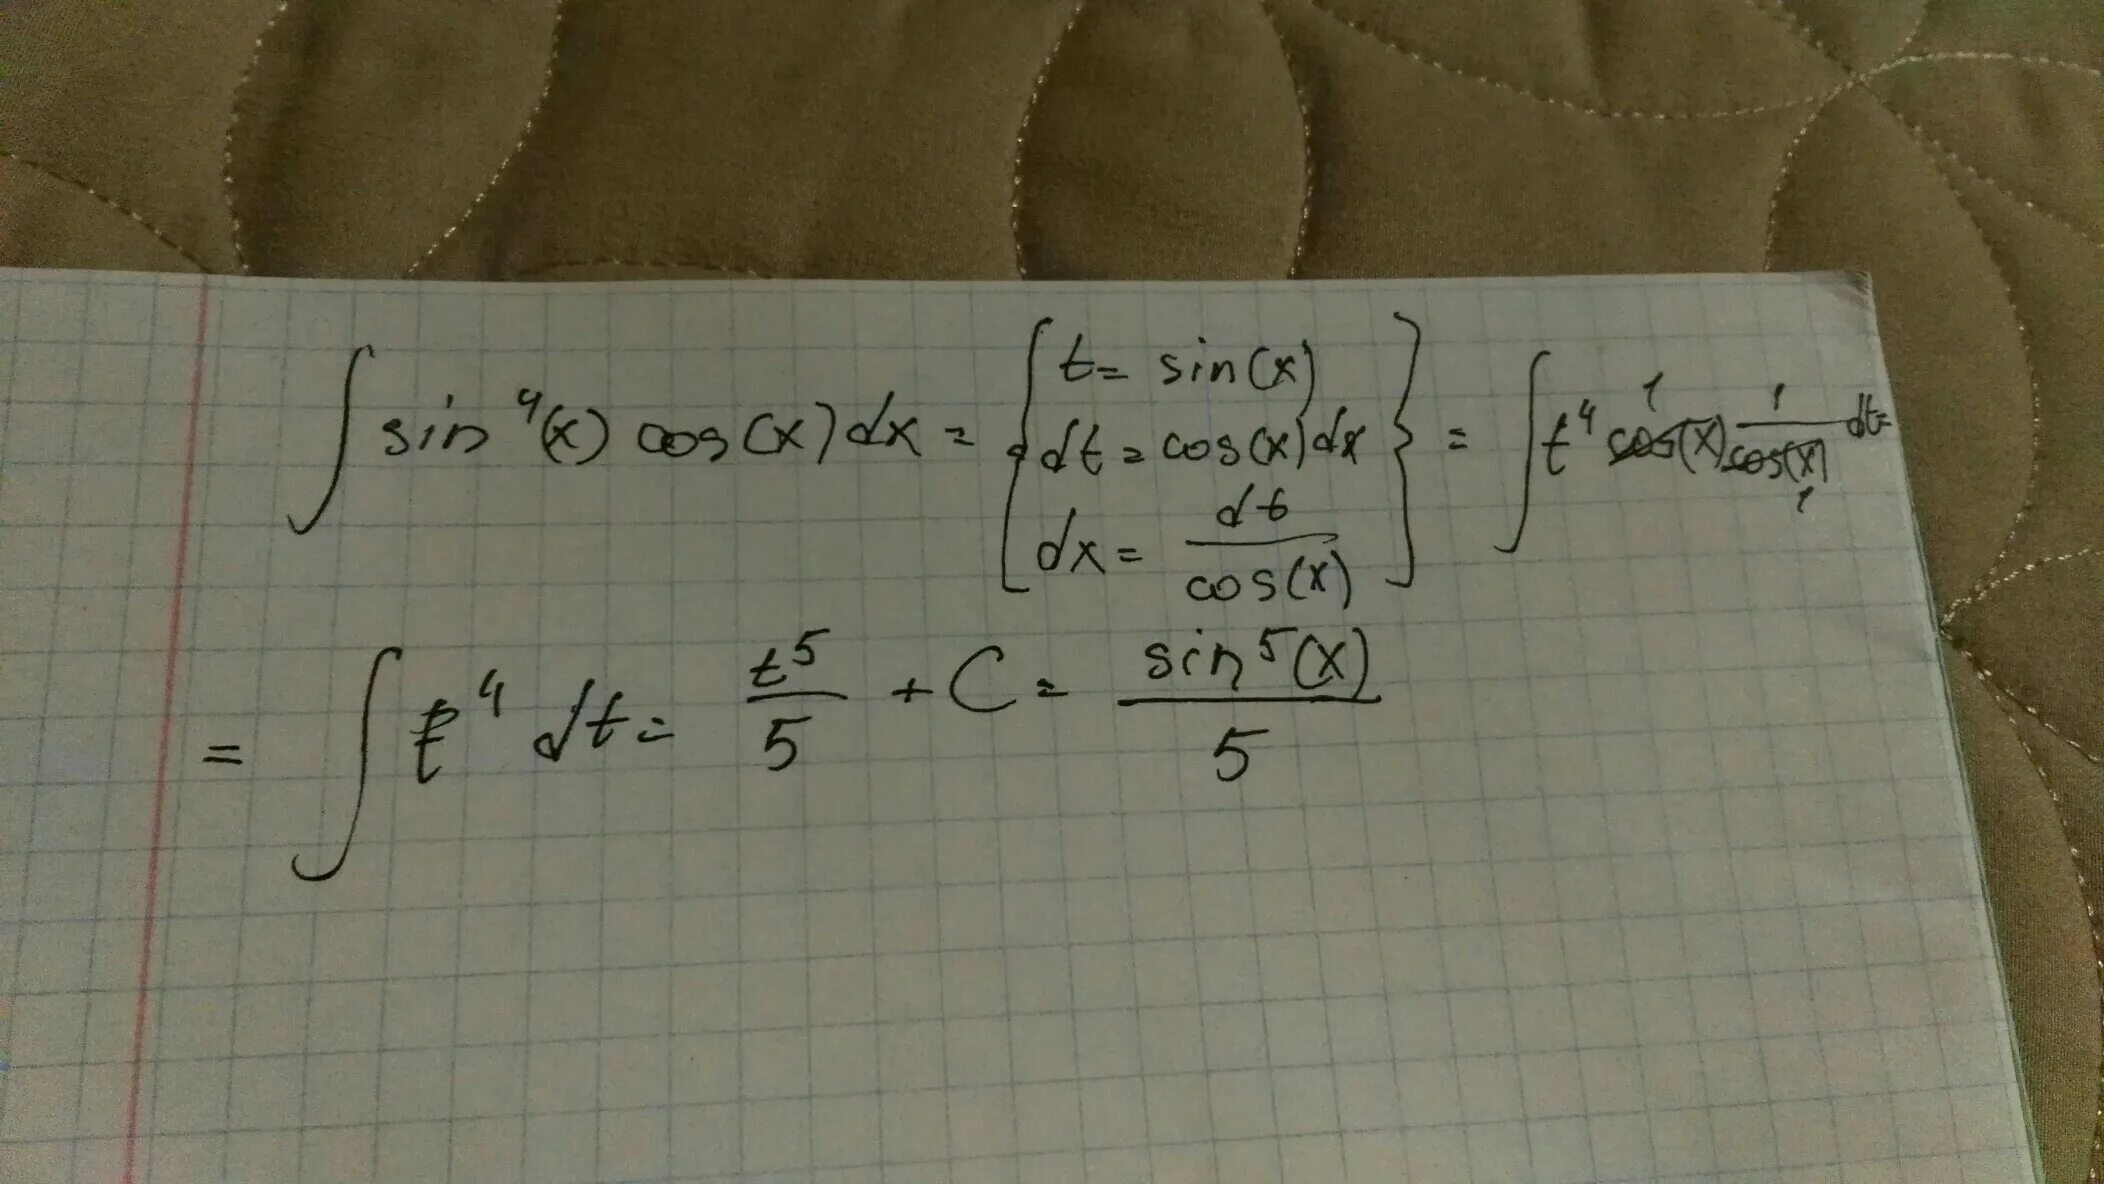 ∫ sin⁴(x) cos(x) dx = { t = sin(x) dt = cos(x) dx dx = dt/cos(x) } = ∫ t⁴ cos(x) 1/cos(x) dt =
= ∫ t⁴ dt = t⁵/5 + C = sin⁵(x)/5